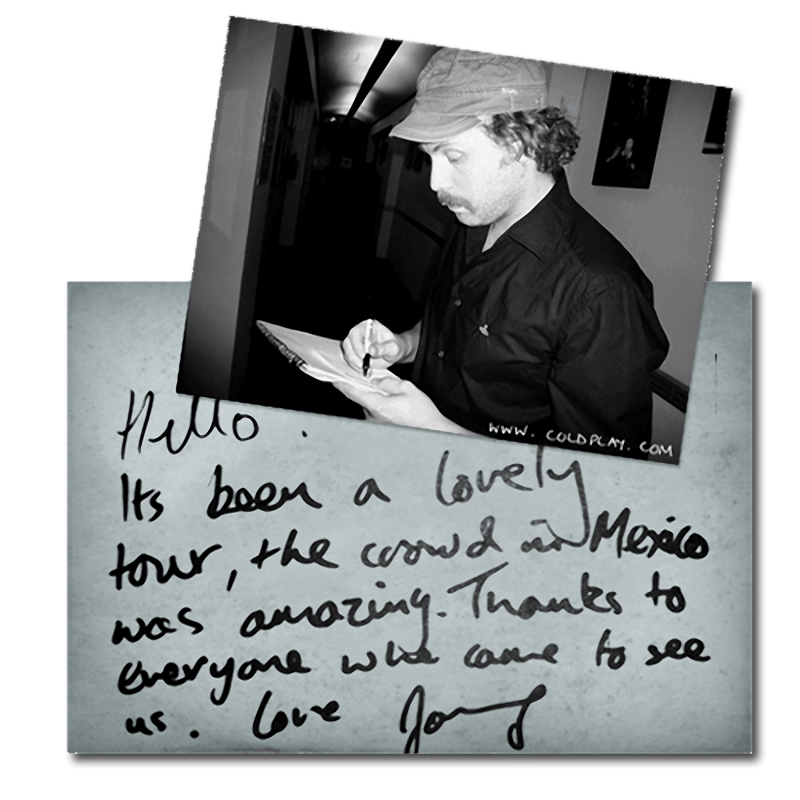 WWW. COLDPLAY. COM
Hello .
Its been a lovely
tour, the crowd in Mexico
was amazing. Thanks to
everyone who came to see
us. Love Jonny